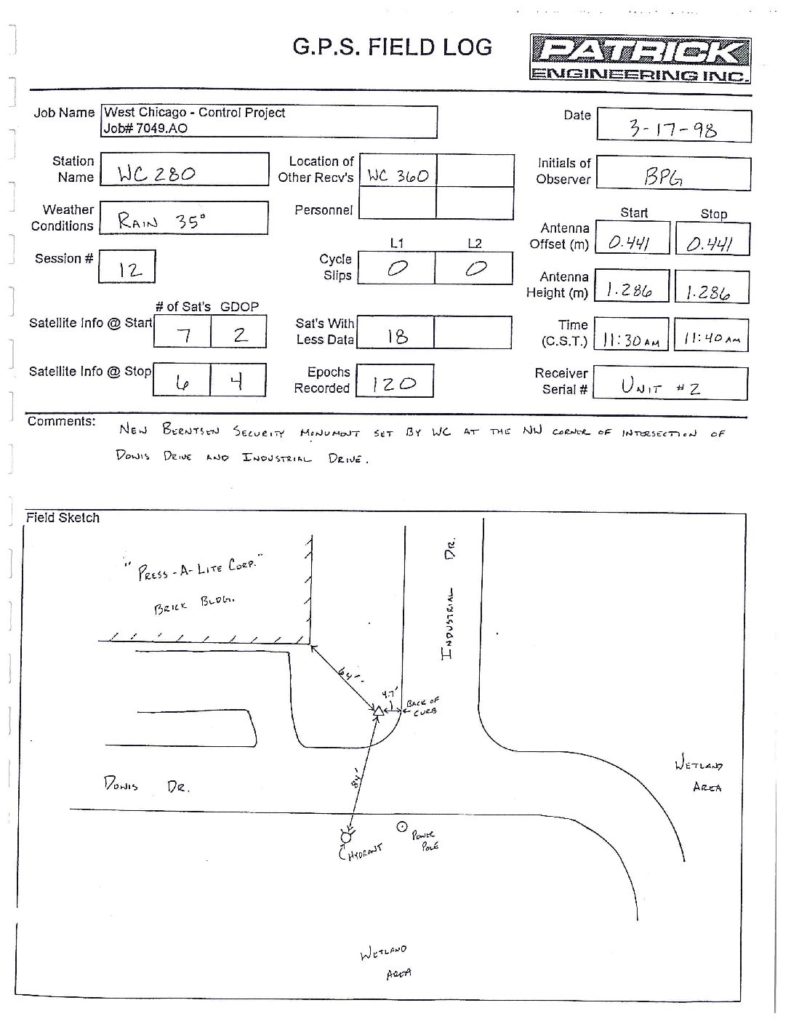 G.P.S. FIELD LOG
PATRICK
ENGINEERING INC.
Job Name West Chicago - Control Project
Job# 7049.AO
Date 3-17-98
Station Name WC 280
Location of Other Recv's WC 360
Initials of Observer BPG
Weather Conditions RAIN 35°
Personnel
Start Stop
Antenna Offset (m) 0.441 0.441
Session # 12
L1 L2
Cycle Slips 0 0
Antenna Height (m) 1.286 1.286
# of Sat's GDOP
Satellite Info @ Start 7 2
Sat's With Less Data 18
Time (C.S.T.) 11:30 AM 11:40 AM
Satellite Info @ Stop 6 4
Epochs Recorded 120
Receiver Serial # UNIT #2
Comments: NEW BERNTSEN SECURITY MONUMENT SET BY WC AT THE NW CORNER OF INTERSECTION OF
DOWIS DRIVE AND INDUSTRIAL DRIVE.
Field Sketch
"PRESS-A-LITE CORP."
BRICK BLDG.
INDUSTRIAL DR.
64'
4.7'
BACK OF
CURB
DOWIS DR.
84'
HYDRANT
POWER
POLE
WETLAND
AREA
WETLAND
AREA